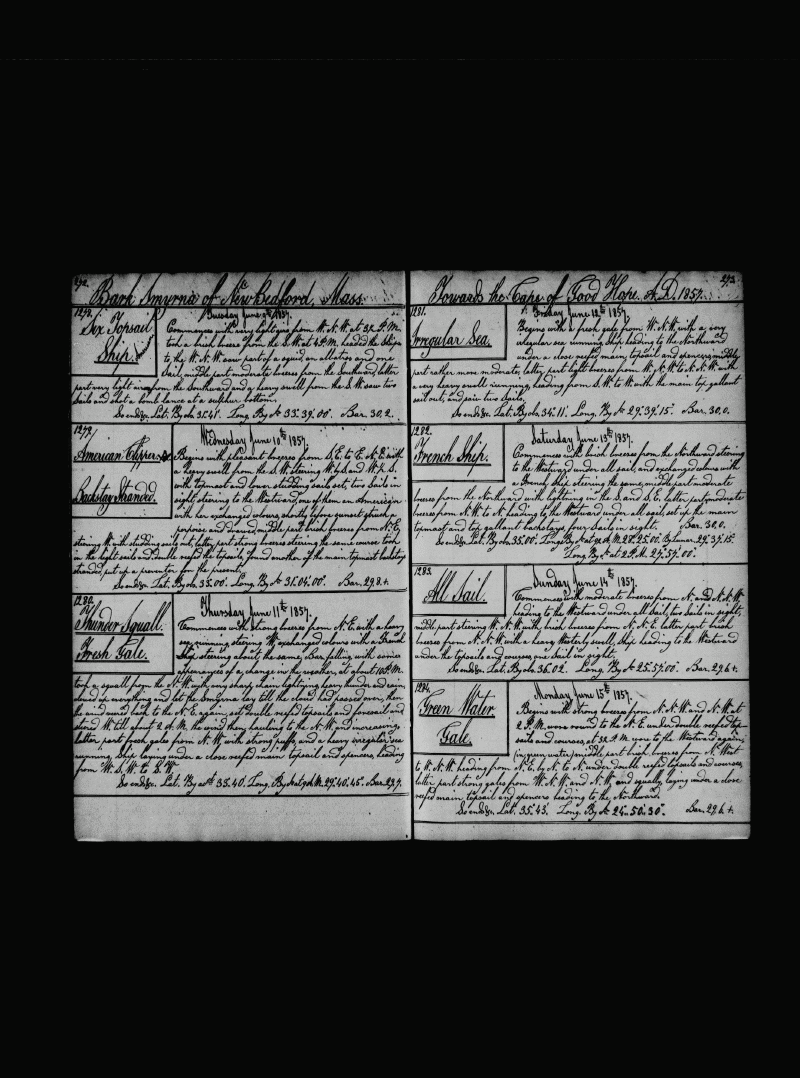 272.
Bark Smyrna of New Bedford, Mass.
1278.
Six Topsail
Ship.
Tuesday June 9th 1857.
Commences with very light airs from W.N.W. at 3½ P.M.
took a brisk breeze from the S.W. at 4 P.M. headed the Ship
to the W.N.W. saw part of a squid, an albatros and one
Sail, middle part moderate breeze from the Southward, latter
part very light airs from the Southward and a heavy swell from the S.W. saw two
Sails and shot a bomb lance at a sulphur bottom.
So ends &c. Lat. By obs. 35.41. Long. By Ar 33.°39.'00." Bar. 30,2.
1279.
American Clipper,
Backstay Stranded.
Wednesday June 10th 1857.
Begins with pleasant breezes from S.E. to E.N.E. with
a heavy swell from the S.W. steering W. by S. and W. ½ S.
with topmast and lower studding sails set, two Sails in
sight steering to the Westward, one of them an American
with her exchanged colours, shortly before sunset struck a
porpoise and drawed, middle part brisk breezes from N.E.
steering W. with studding sails out, latter part strong breezes steering the same course took
in the light sails and double reefed the topsails, found another of the main topmast backstays
stranded, put up a preventor for the present.
So ends &c. Lat. By obs. 35.00. Long. By Ar 31.°04.'00." Bar. 29,8+.
1280.
Thunder Squall.
Fresh Gale.
Thursday June 11th 1857.
Commences with strong breezes from N.E. with a heavy
sea running, steering W. exchanged colours with a French
Ship steering about the same, Bar. falling, with some
appearances of a change in the weather, at about 10 P.M.
took a squall from the N.W. with very sharp chain lightning heavy thunder and rain,
clewed up everything and let the Smyrna lay till the cloud had passed over, then
the wind veered back to the N.E. again, set double reefed topsails and foresail and
steered W. till about 2 A.M. the wind then hauling to the N.W. and increasing,
latter part fresh gales from N.W. with strong puffs, and a heavy irregular sea
running, Ship laying under a close reefed main topsail and spencers, heading
from W.S.W. to S.W.
So ends &c. Lat. By act 35.40. Long. By Ar at 9 A.M. 29.°40.'45." Bar. 29,7.
273.
Towards the Cape of Good Hope. A.D. 1857.
1281.
Irregular Sea.
Friday June 12th 1857.
Begins with a fresh gale from W.N.W. with a very
irregular sea running Ship heading to the Northward
under a close reefed main topsail and spencers, middle
part rather more moderate, latter part light breezes from W.N.W. to N.N.W. with
a very heavy swell running, heading from S.W. to W. with the main top gallant
sail out, and saw two Sails.
So ends &c. Lat. By obs. 34.°11.' Long. By Ar 29.°39.'15." Bar. 30,0.
1282.
French Ship.
Saturday June 13th 1857.
Commences with brisk breezes from the Northward steering
to the Westward under all sail, and exchanged colours with
a French Ship steering the same, middle part moderate
breezes from the Northward with lightning in the S. and S.E. latter part moderate
breezes from N.W. to N. heading to the Westward under all sail, set up the main
topmast and top gallant backstays, four Sails in sight. Bar. 30,0.
So ends &c. Lat. By obs. 35.00. Long. By Ar at 9 A.M. 28.°25.'00." By Lunar. 29.°37.'15."
Long. By Ar at 2 P.M. 27.°57.'00."
1283.
All Sail.
Sunday June 14th 1857.
Commences with moderate breezes from N. and N.N.W.
heading to the Westward under all Sail, two Sails in sight,
middle part steering W.N.W. with brisk breezes from N.N.E. latter part brisk
breezes from N.N.W. with a heavy Westerly swell, Ship heading to the Westward
under the topsails and courses, one Sail in sight.
So ends &c. Lat. By obs. 36.02. Long. By Ar 25.°57.'00." Bar. 29,6+.
1284.
Green Water
Gale.
Monday June 15th 1857.
Begins with strong breezes from N.N.W. and N.W. at
2 P.M. wore round to the N.E. under double reefed top-
sails and courses, at 3½ P.M. wore to the Westward again
in green water, middle part brisk breezes from N. West
to W.N.W. heading from N.E. by N. to N. under double reefed topsails and courses,
latter part strong gales from W.N.W. and N.W. and squally, laying under a close
reefed main topsail and spencers heading to the Northward.
So ends &c. Lat. 35.°43.' Long. By Ar 24.°50.'30." Bar. 29,6+.